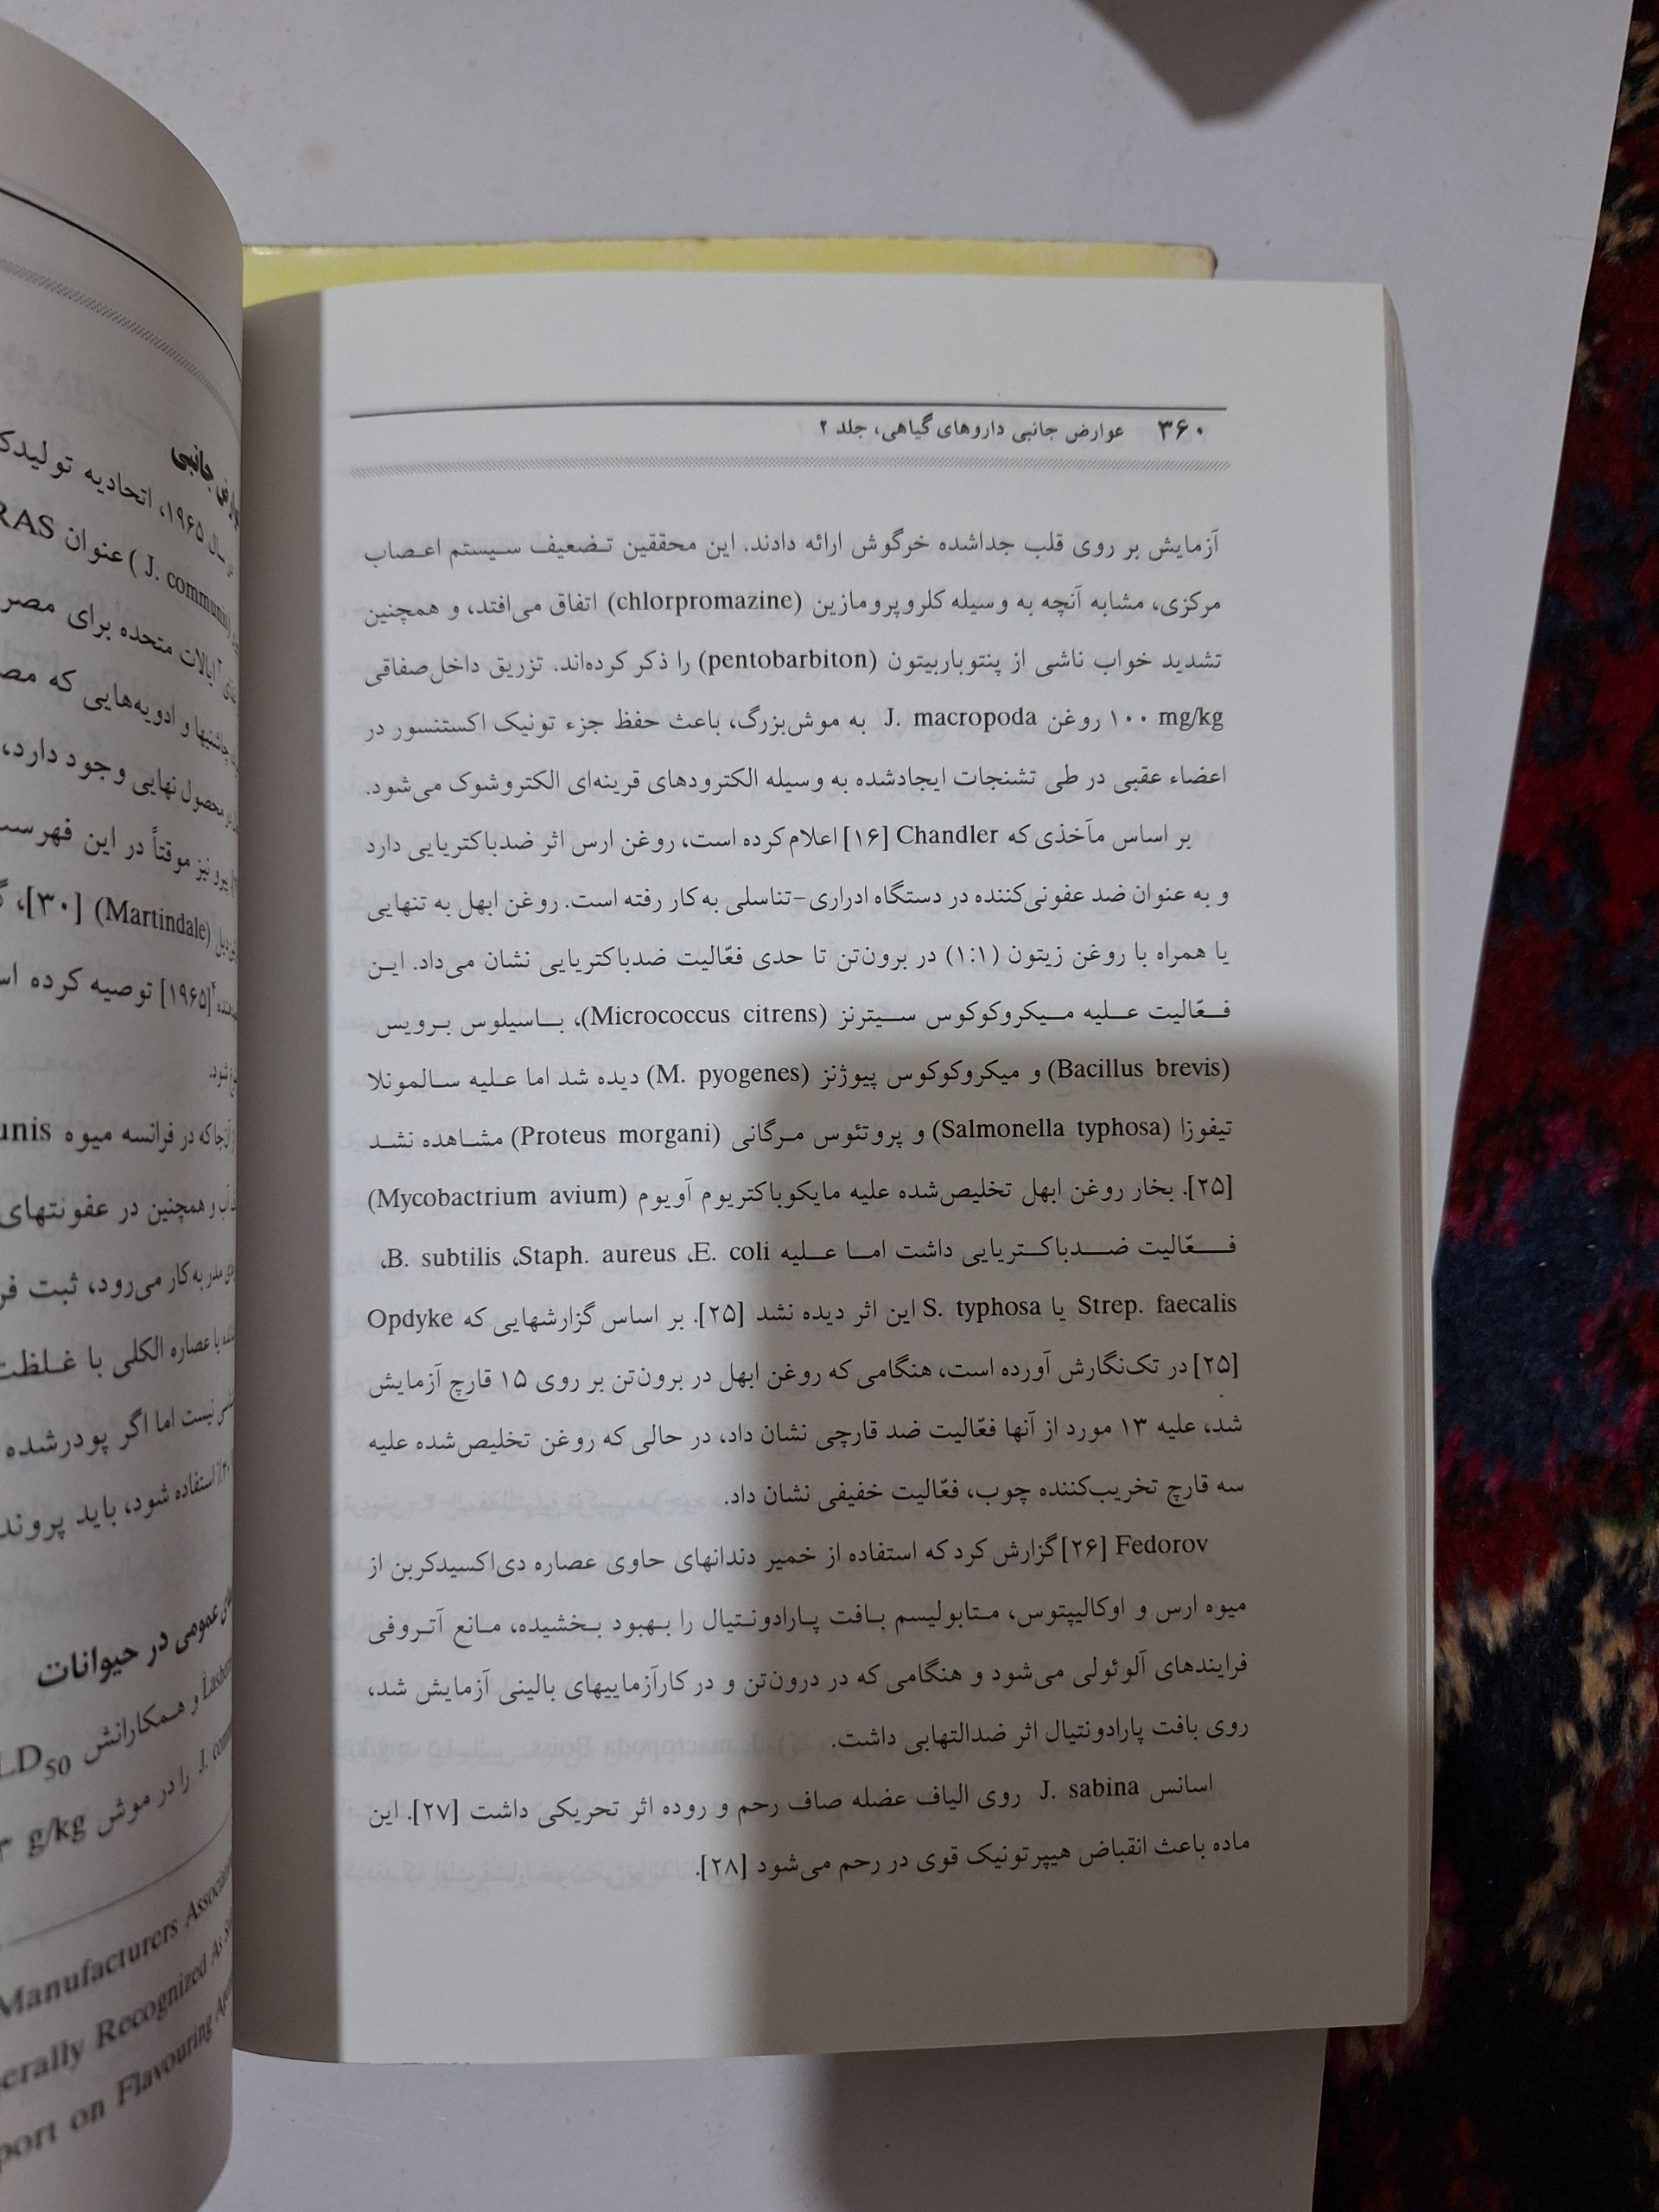 ۳۶۰ عوارض جانبی داروهای گیاهی، جلد ۲
آزمایش بر روی قلب جداشده خرگوش ارائه دادند. این محققین تضعیف سیستم اعصاب
مرکزی، مشابه آنچه به وسیله کلروپرومازین (chlorpromazine) اتفاق می‌افتد، و همچنین
تشدید خواب ناشی از پنتوباربیتون (pentobarbiton) را ذکر کرده‌اند. تزریق داخل‌صفاقی
۱۰۰ mg/kg روغن J. macropoda به موش‌بزرگ، باعث حفظ جزء تونیک اکستنسور در
اعضاء عقبی در طی تشنجات ایجادشده به وسیله الکترودهای قرینه‌ای الکتروشوک می‌شود.
بر اساس مآخذی که Chandler [۱۶] اعلام کرده است، روغن ارس اثر ضدباکتریایی دارد
و به عنوان ضد عفونی‌کننده در دستگاه ادراری-تناسلی به‌کار رفته است. روغن ابهل به تنهایی
یا همراه با روغن زیتون (۱:۱) در برون‌تن تا حدی فعّالیت ضدباکتریایی نشان می‌داد. این
فعّالیت علیه میکروکوکوس سیترنز (Micrococcus citrens)، باسیلوس برویس
(Bacillus brevis) و میکروکوکوس پیوژنز (M. pyogenes) دیده شد اما علیه سالمونلا
تیفوزا (Salmonella typhosa) و پروتئوس مرگانی (Proteus morgani) مشاهده نشد
[۲۵]. بخار روغن ابهل تخلیص‌شده علیه مایکوباکتریوم آویوم (Mycobactrium avium)
فعّالیت ضدباکتریایی داشت اما علیه E. coli، Staph. aureus، B. subtilis،
Strep. faecalis یا S. typhosa این اثر دیده نشد [۲۵]. بر اساس گزارشهایی که Opdyke
[۲۵] در تک‌نگارش آورده است، هنگامی که روغن ابهل در برون‌تن بر روی ۱۵ قارچ آزمایش
شد، علیه ۱۳ مورد از آنها فعّالیت ضد قارچی نشان داد، در حالی که روغن تخلیص‌شده علیه
سه قارچ تخریب‌کننده چوب، فعّالیت خفیفی نشان داد.
Fedorov [۲۶] گزارش کرد که استفاده از خمیر دندانهای حاوی عصاره دی‌اکسیدکربن از
میوه ارس و اوکالیپتوس، متابولیسم بافت پارادونتیال را بهبود بخشیده، مانع آتروفی
فرایندهای آلوئولی می‌شود و هنگامی که در درون‌تن و در کارآزماییهای بالینی آزمایش شد،
روی بافت پارادونتیال اثر ضدالتهابی داشت.
اسانس J. sabina روی الیاف عضله صاف رحم و روده اثر تحریکی داشت [۲۷]. این
ماده باعث انقباض هیپرتونیک قوی در رحم می‌شود [۲۸].
جانبی
سال ۱۹۶۵، اتحادیه
(J. communis) عنوان
ایالات متحده برای
چاشنیها و ادویه‌هایی که
محصول نهایی وجود دارد،
نیز موقتاً در این
(Martindale) [۳۰]،
[۱۹۶۵] توصیه کرده
شود.
که در فرانسه میوه
و همچنین در عفونتهای
مدر به‌کار می‌رود، ثبت
با عصاره الکلی با
نیست اما اگر پودرشده
استفاده شود، باید
عمومی در حیوانات
و همکارانش LD50
را در موش g/kg
Manufacturers
Recognized As
on Flavouring